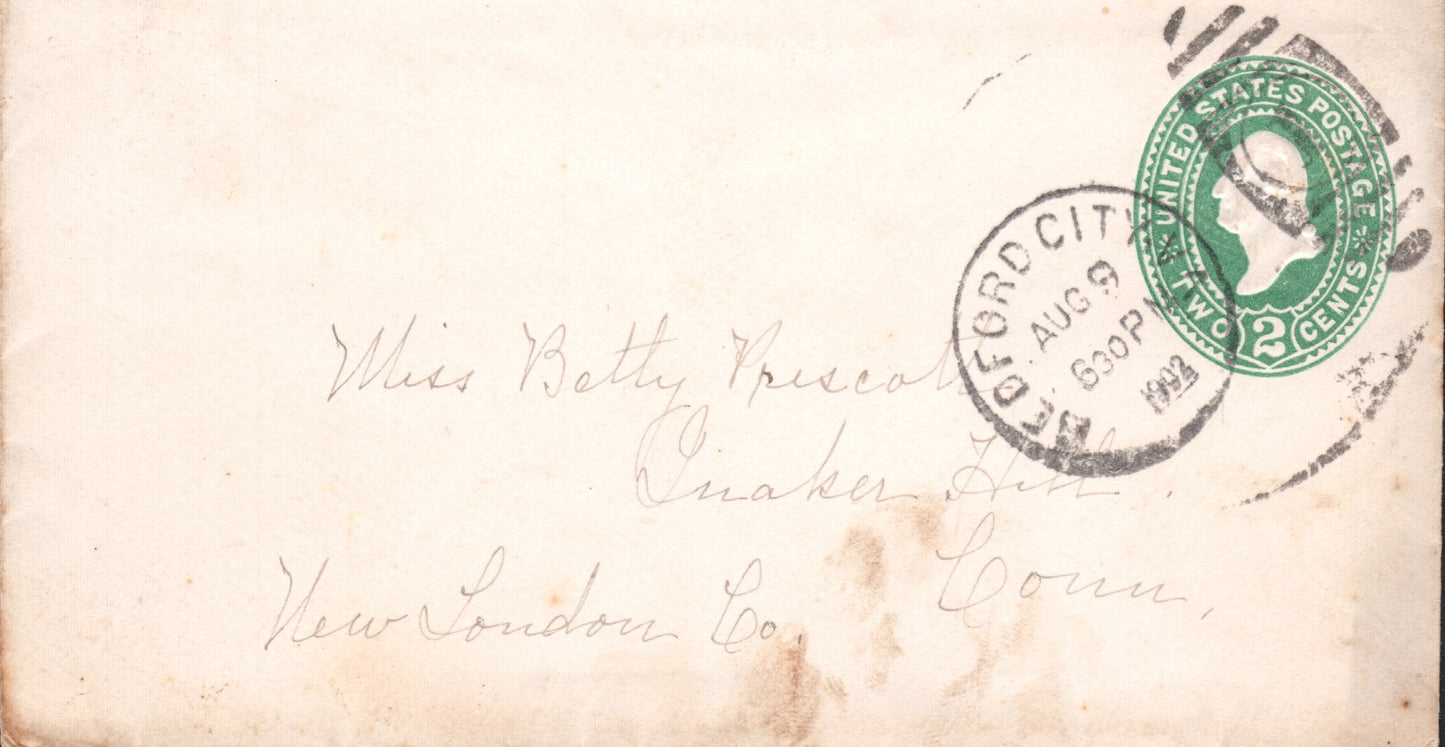 UNITED STATES POSTAGE
TWO 2 CENTS
BEDFORD CITY VA
AUG 9
630 PM
Miss Betty Prescott
Quaker Hill.
New London Co. Conn,